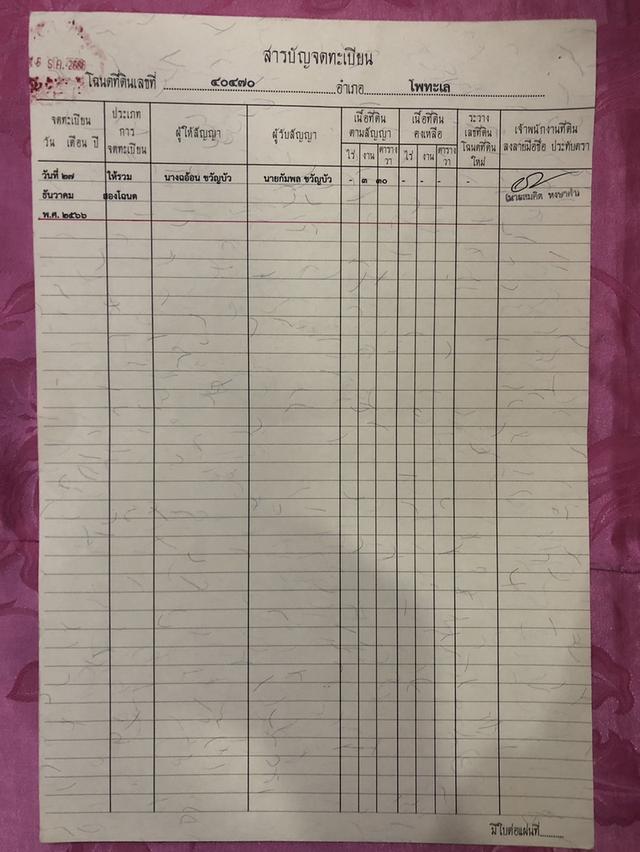 สารบัญจดทะเบียน
โฉนดที่ดินเลขที่ ๔๐๔๗๐ อำเภอ โพทะเล
จดทะเบียน ประเภท ผู้ให้สัญญา ผู้รับสัญญา เนื้อที่ดิน เนื้อที่ดิน ระวาง เจ้าพนักงานที่ดิน
วัน เดือน ปี การ ตามสัญญา คงเหลือ เลขที่ดิน ลงลายมือชื่อ ประทับตรา
จดทะเบียน ไร่ งาน ตารางวา ไร่ งาน ตารางวา โฉนดที่ดินใหม่
วันที่ ๒๗ ให้รวม นางฉอ้อน ขวัญบัว นายกัมพล ขวัญบัว - ๓ ๓๐ - - - -
ธันวาคม สองโฉนด
พ.ศ. ๒๕๖๖
มีใบต่อแผ่นที่............